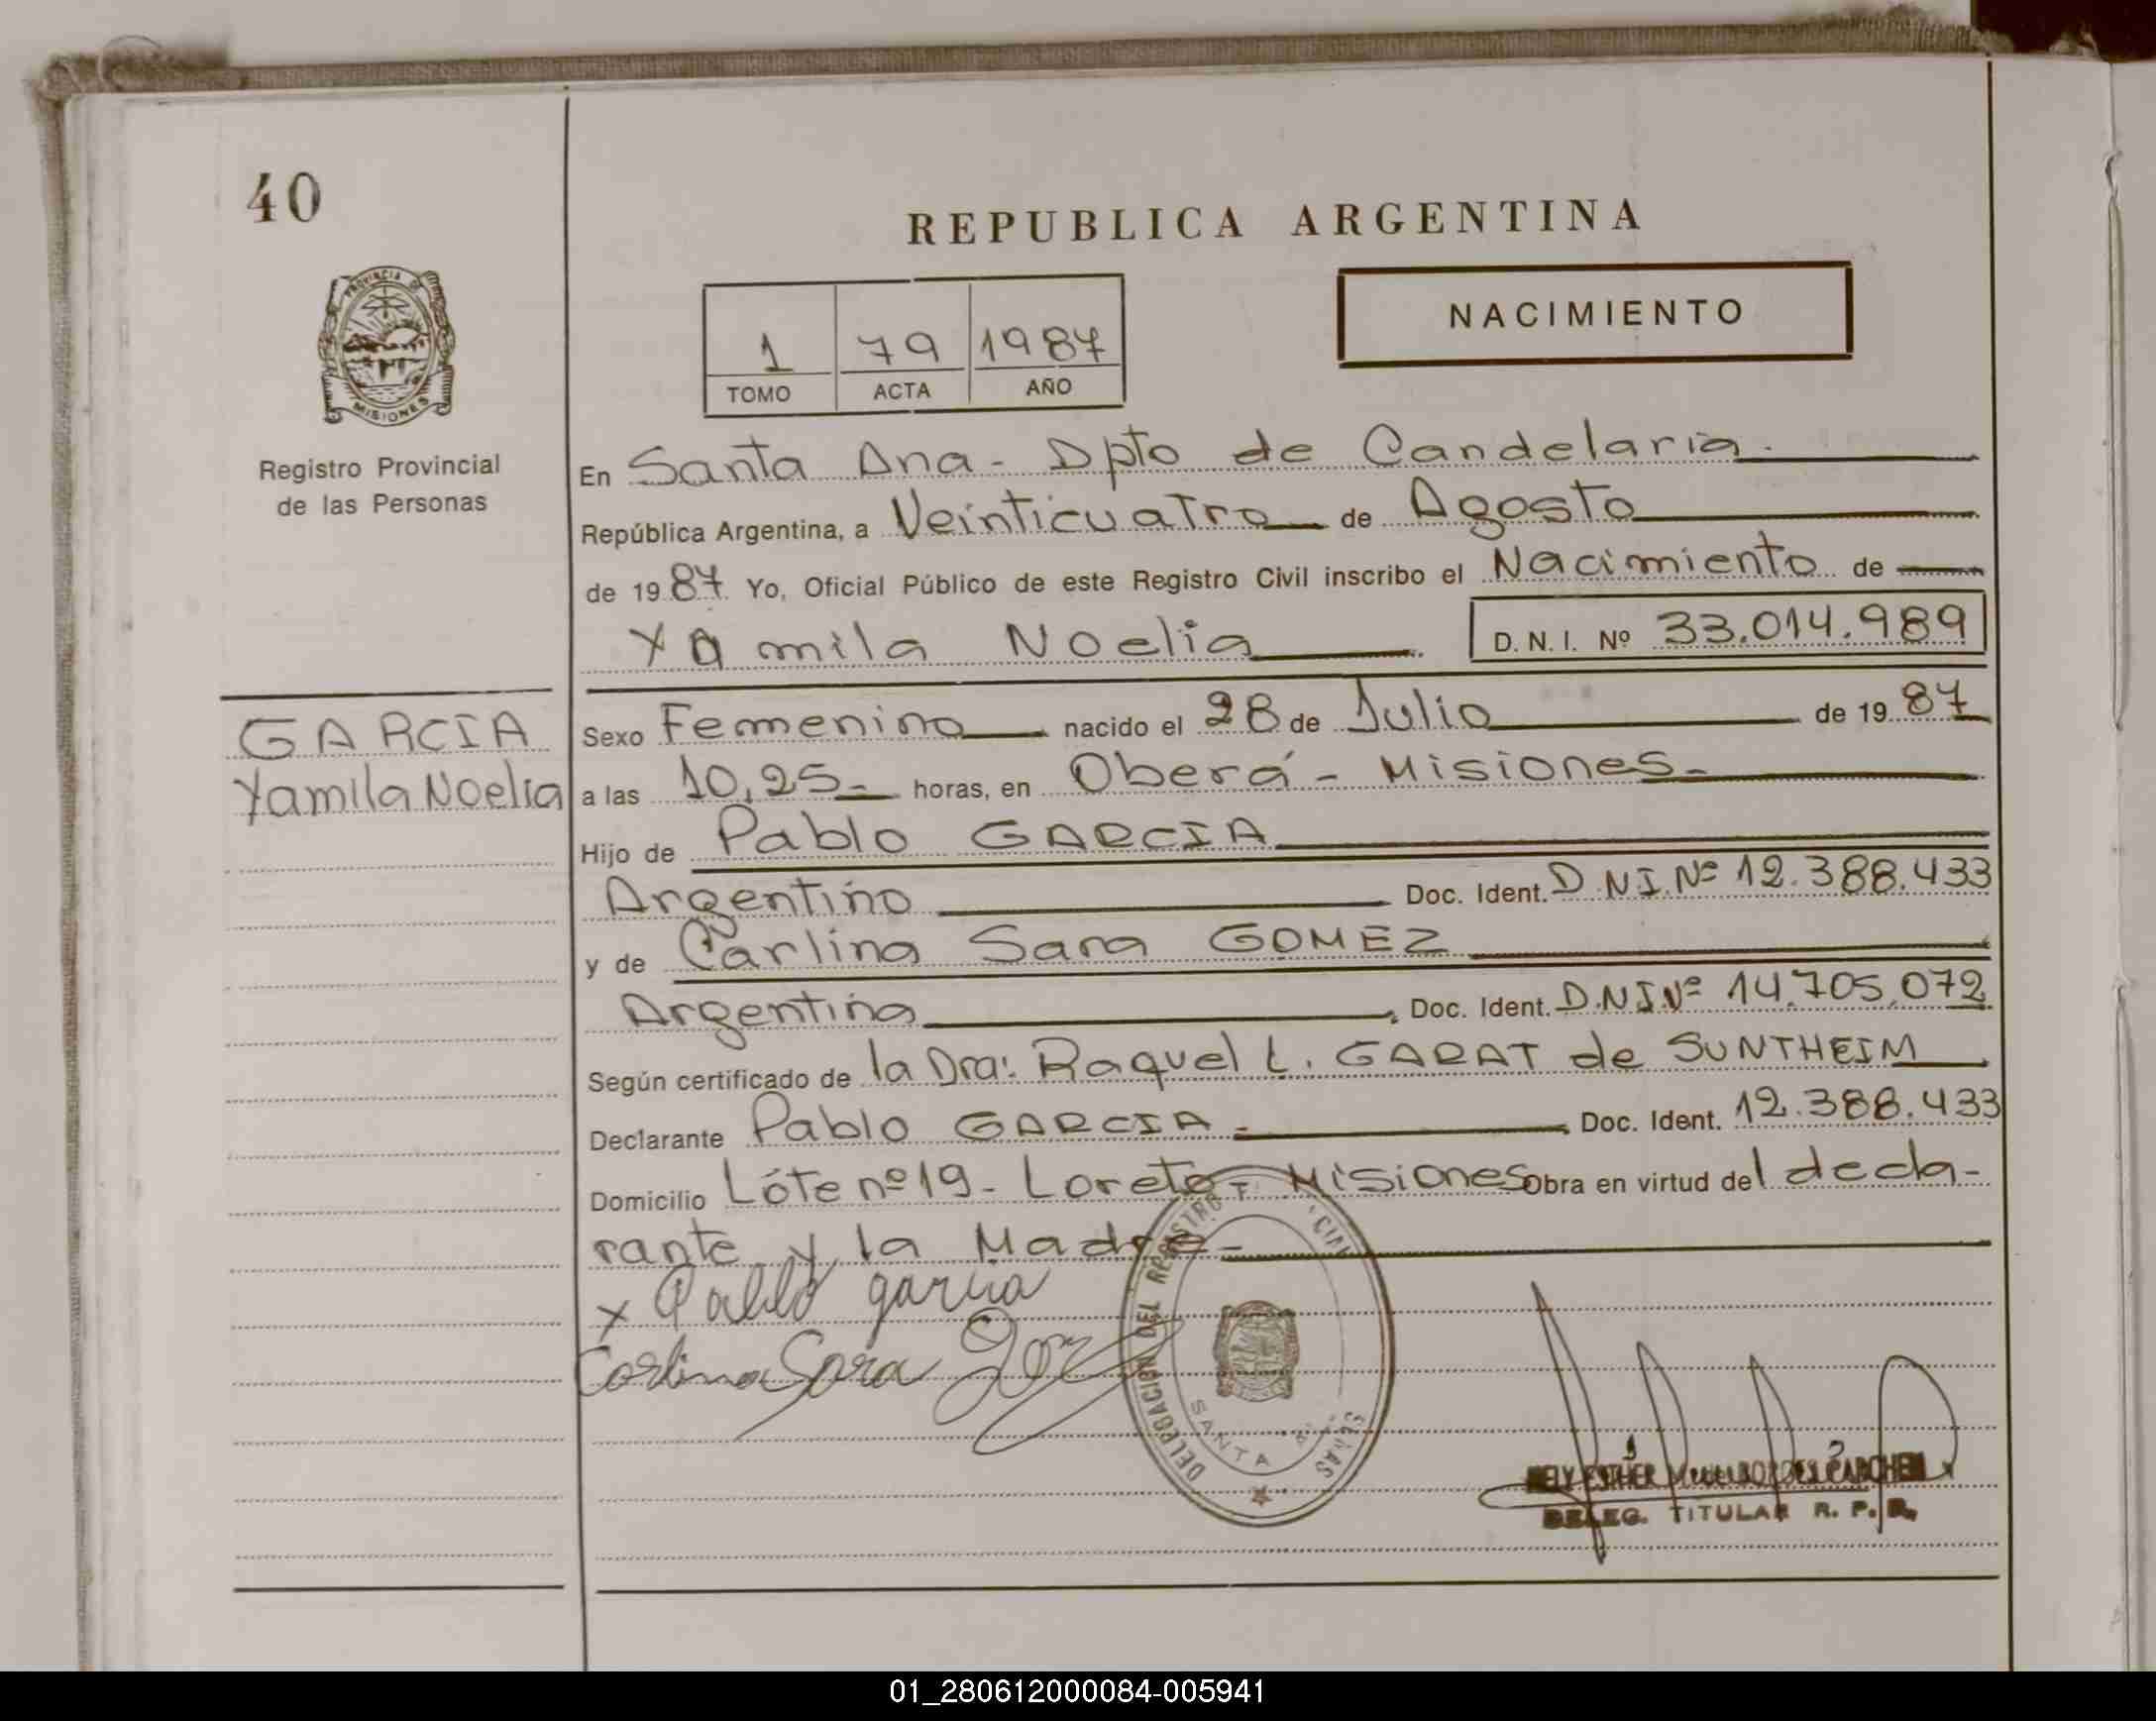 40
REPUBLICA ARGENTINA
PROVINCIA D
MISIONES
NACIMIENTO
1 79 1987
TOMO ACTA AÑO
Registro Provincial
de las Personas
En Santa Ana - Dpto de Candelaria.
República Argentina, a Veinticuatro de Agosto
de 1987 Yo, Oficial Público de este Registro Civil inscribo el Nacimiento de
Yamila Noelia D. N. I. Nº 33.014.989
GARCIA
Yamila Noelia
Sexo Femenino nacido el 28 de Julio de 1987
a las 10,25- horas, en Oberá - Misiones-
Hijo de Pablo GARCIA
Argentino Doc. Ident. D.N.I.Nº 12.388.433
y de Carlina Sara GOMEZ
Argentina Doc. Ident. D.N.I.Nº 14.705.072
Según certificado de la Dra: Raquel L. GARAT de SUNTHEIM
Declarante Pablo GARCIA - Doc. Ident. 12.388.433
Domicilio Lóte nº 19 - Loreto - Misiones Obra en virtud del decla-
rante y la Madre -
x Pablo garcia
Carlina Sara
DELEGACION DEL REGISTRO
SANTA
ESTHER
DELEG. TITULAR R. P. P.
01_280612000084-005941